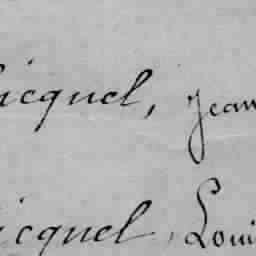 icquel, Jean
icquel, Loui